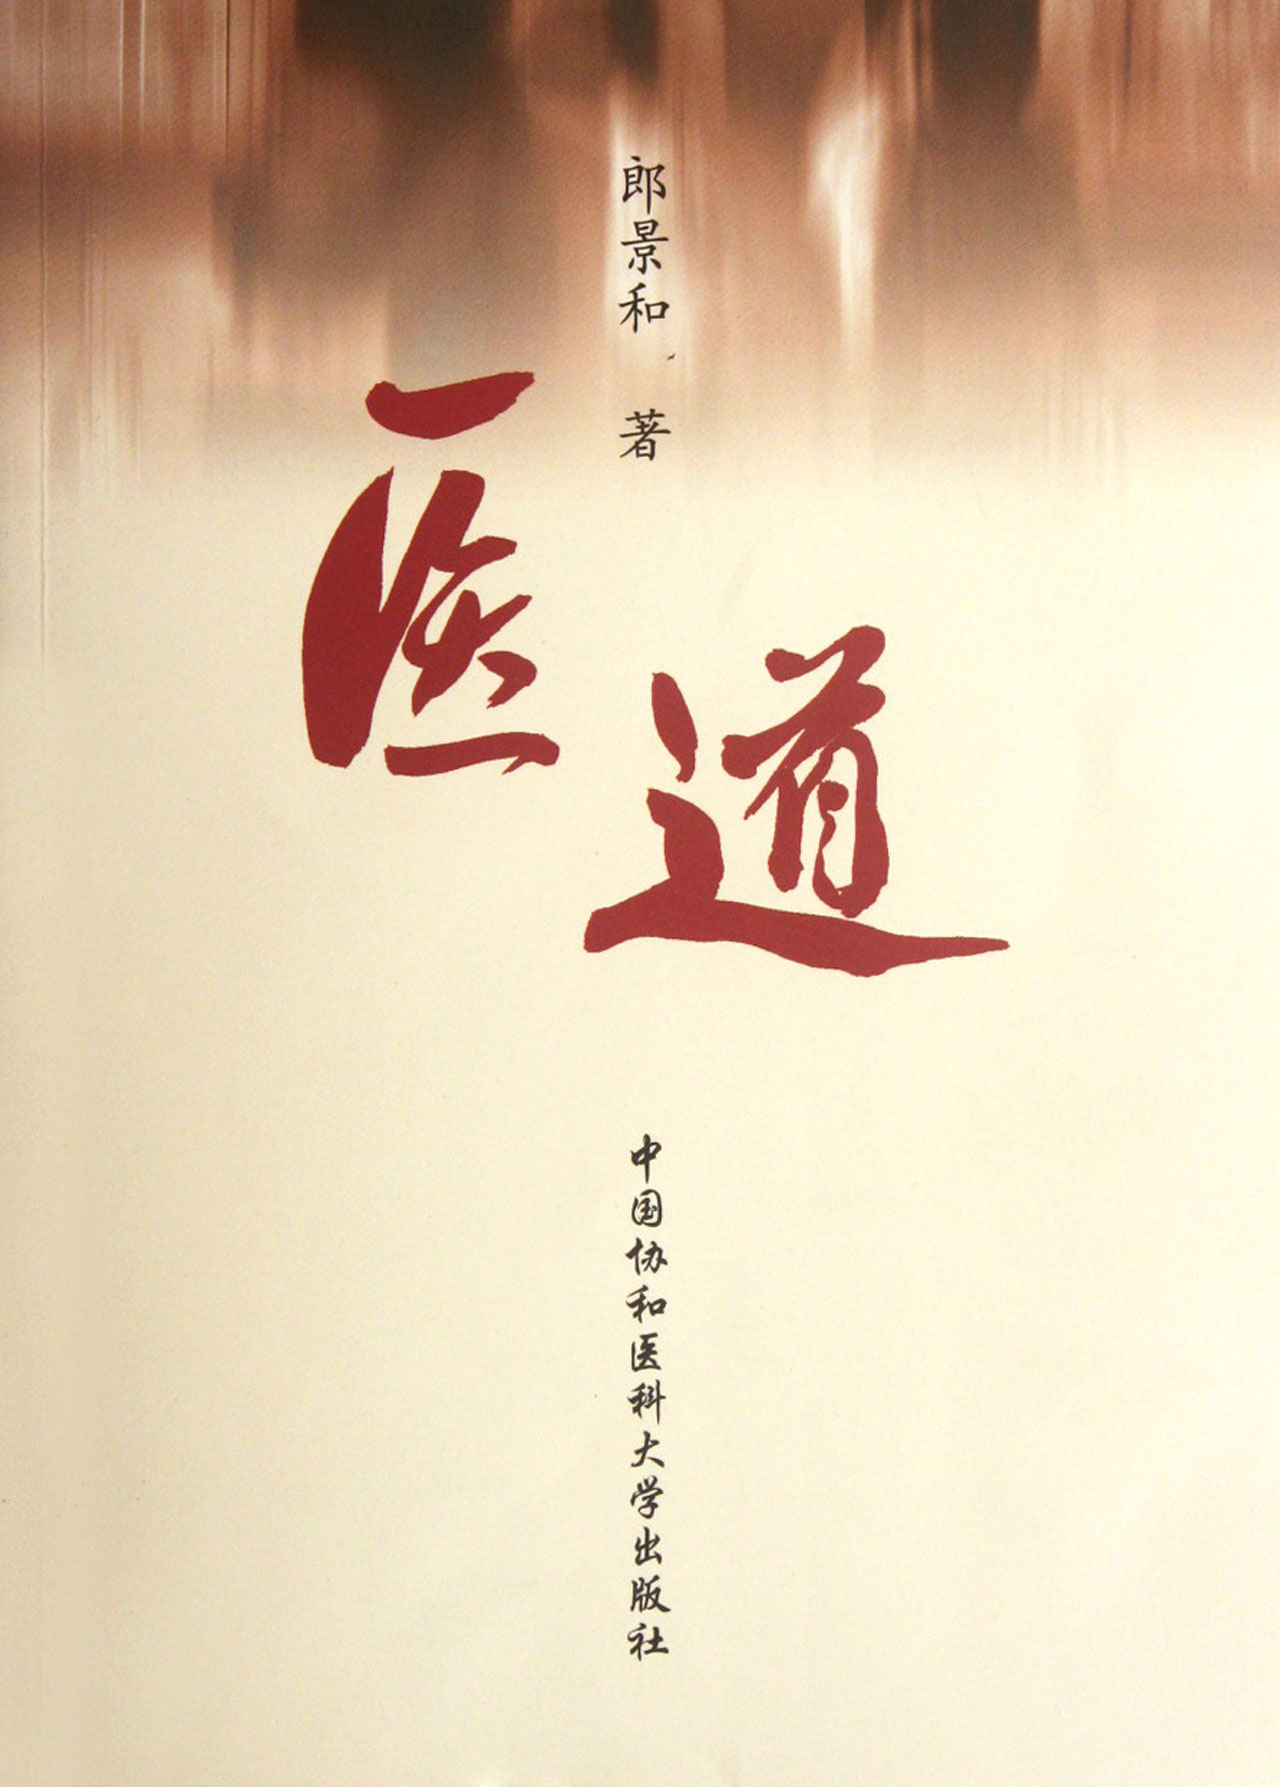 郎景和 著
医道
中国协和医科大学出版社